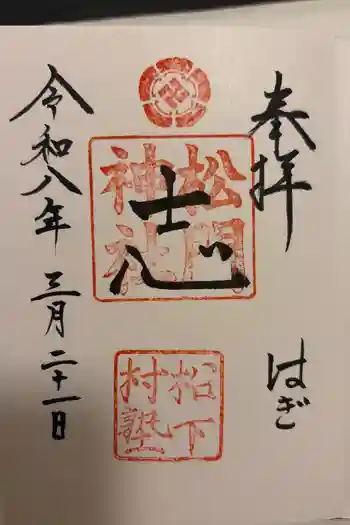 奉拝
はぎ
志
松門
神社
松下
村塾
令和八年 三月二十一日